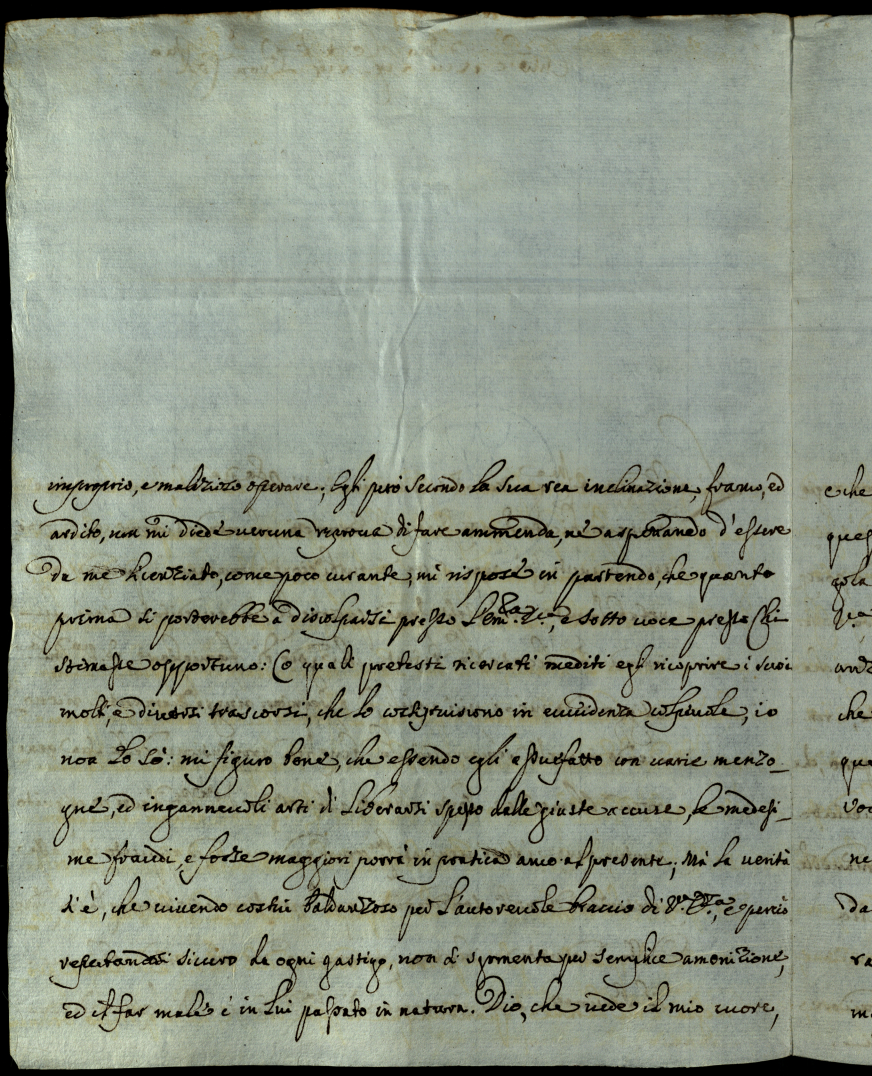 improprio, e malizioso operare; Egli però secondo la sua rea inclinazione, franco, ed
ardito, non mi diede veruna riprova di fare ammenda, nè aspettando d'essere
da me licenziato, come poco curante, mi rispose in partendo, che quanto
prima si porterebbe a discolparsi presso l'Em.za V.ra, e sotto voce presso Chi
stimasse opportuno: Co quali pretesti ricercati mediti egli ricoprire i suoi
molti, e diversi trascorsi, che lo costituiscono in evvidenza colpevole, io
non lo sò: mi figuro bene, che essendo egli assuefatto con varie menzo_
gne, ed ingannevoli arti di liberarsi spesso dalle giuste accuse, le medesi_
me fraudi, e forse maggiori porrà in pratica anco al presente; Mà la verità
s'è, che vivendo costui baldanzoso per l'autorevole braccio di V.ra Em.za, e perciò
sicuro da ogni gastigo, non si sgomenta per semplice amonizione,
ed il far male è in lui passato in natura. Dio, che vede il mio cuore,
e che
ques
gola
V.ra
anz
che
que
voc
ne
da
ra
m